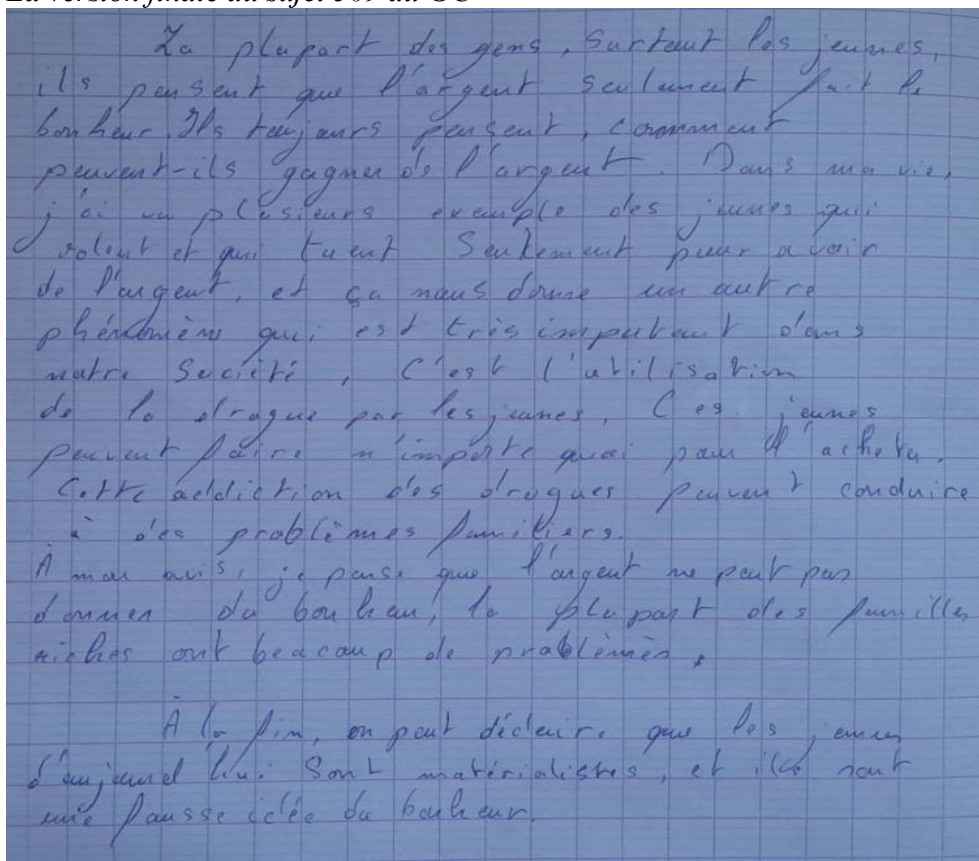 La version finale du sujet 309 du GC
La plupart des gens, surtout les jeunes,
ils pensent que l'argent seulement fait le
bonheur. Ils toujours pensent, comment
peuvent-ils gagner de l'argent. Dans ma vie,
j'ai vu plusieurs exemple des jeunes qui
volent et qui tuent seulement pour avoir
de l'argent, et ça nous donne un autre
phénomèn qui est très important dans
notre Société, C'est l'utilisation
de la drogue par les jeunes, Ces jeunes
peuvent faire n'importe quoi pour l'acheter.
Cette addiction des drogues peuvent conduire
à des problèmes familiers.
À mon avis, je pense que l'argent ne peut pas
donner du bonheur, la plupart des familles
riches ont beacoup de problèmes.
À la fin, on peut déduire que les jeunes
sont matérialistes, et ils ont
une fausse idée du bonheur.